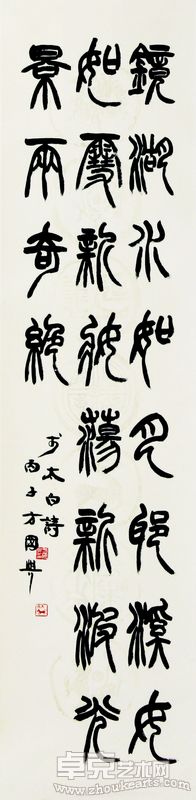 鏡湖水如月耶溪女
如雪新妝蕩新波光
景兩奇絕
李太白詩
丙子方國興
卓克艺术网
www.zhoukearts.com